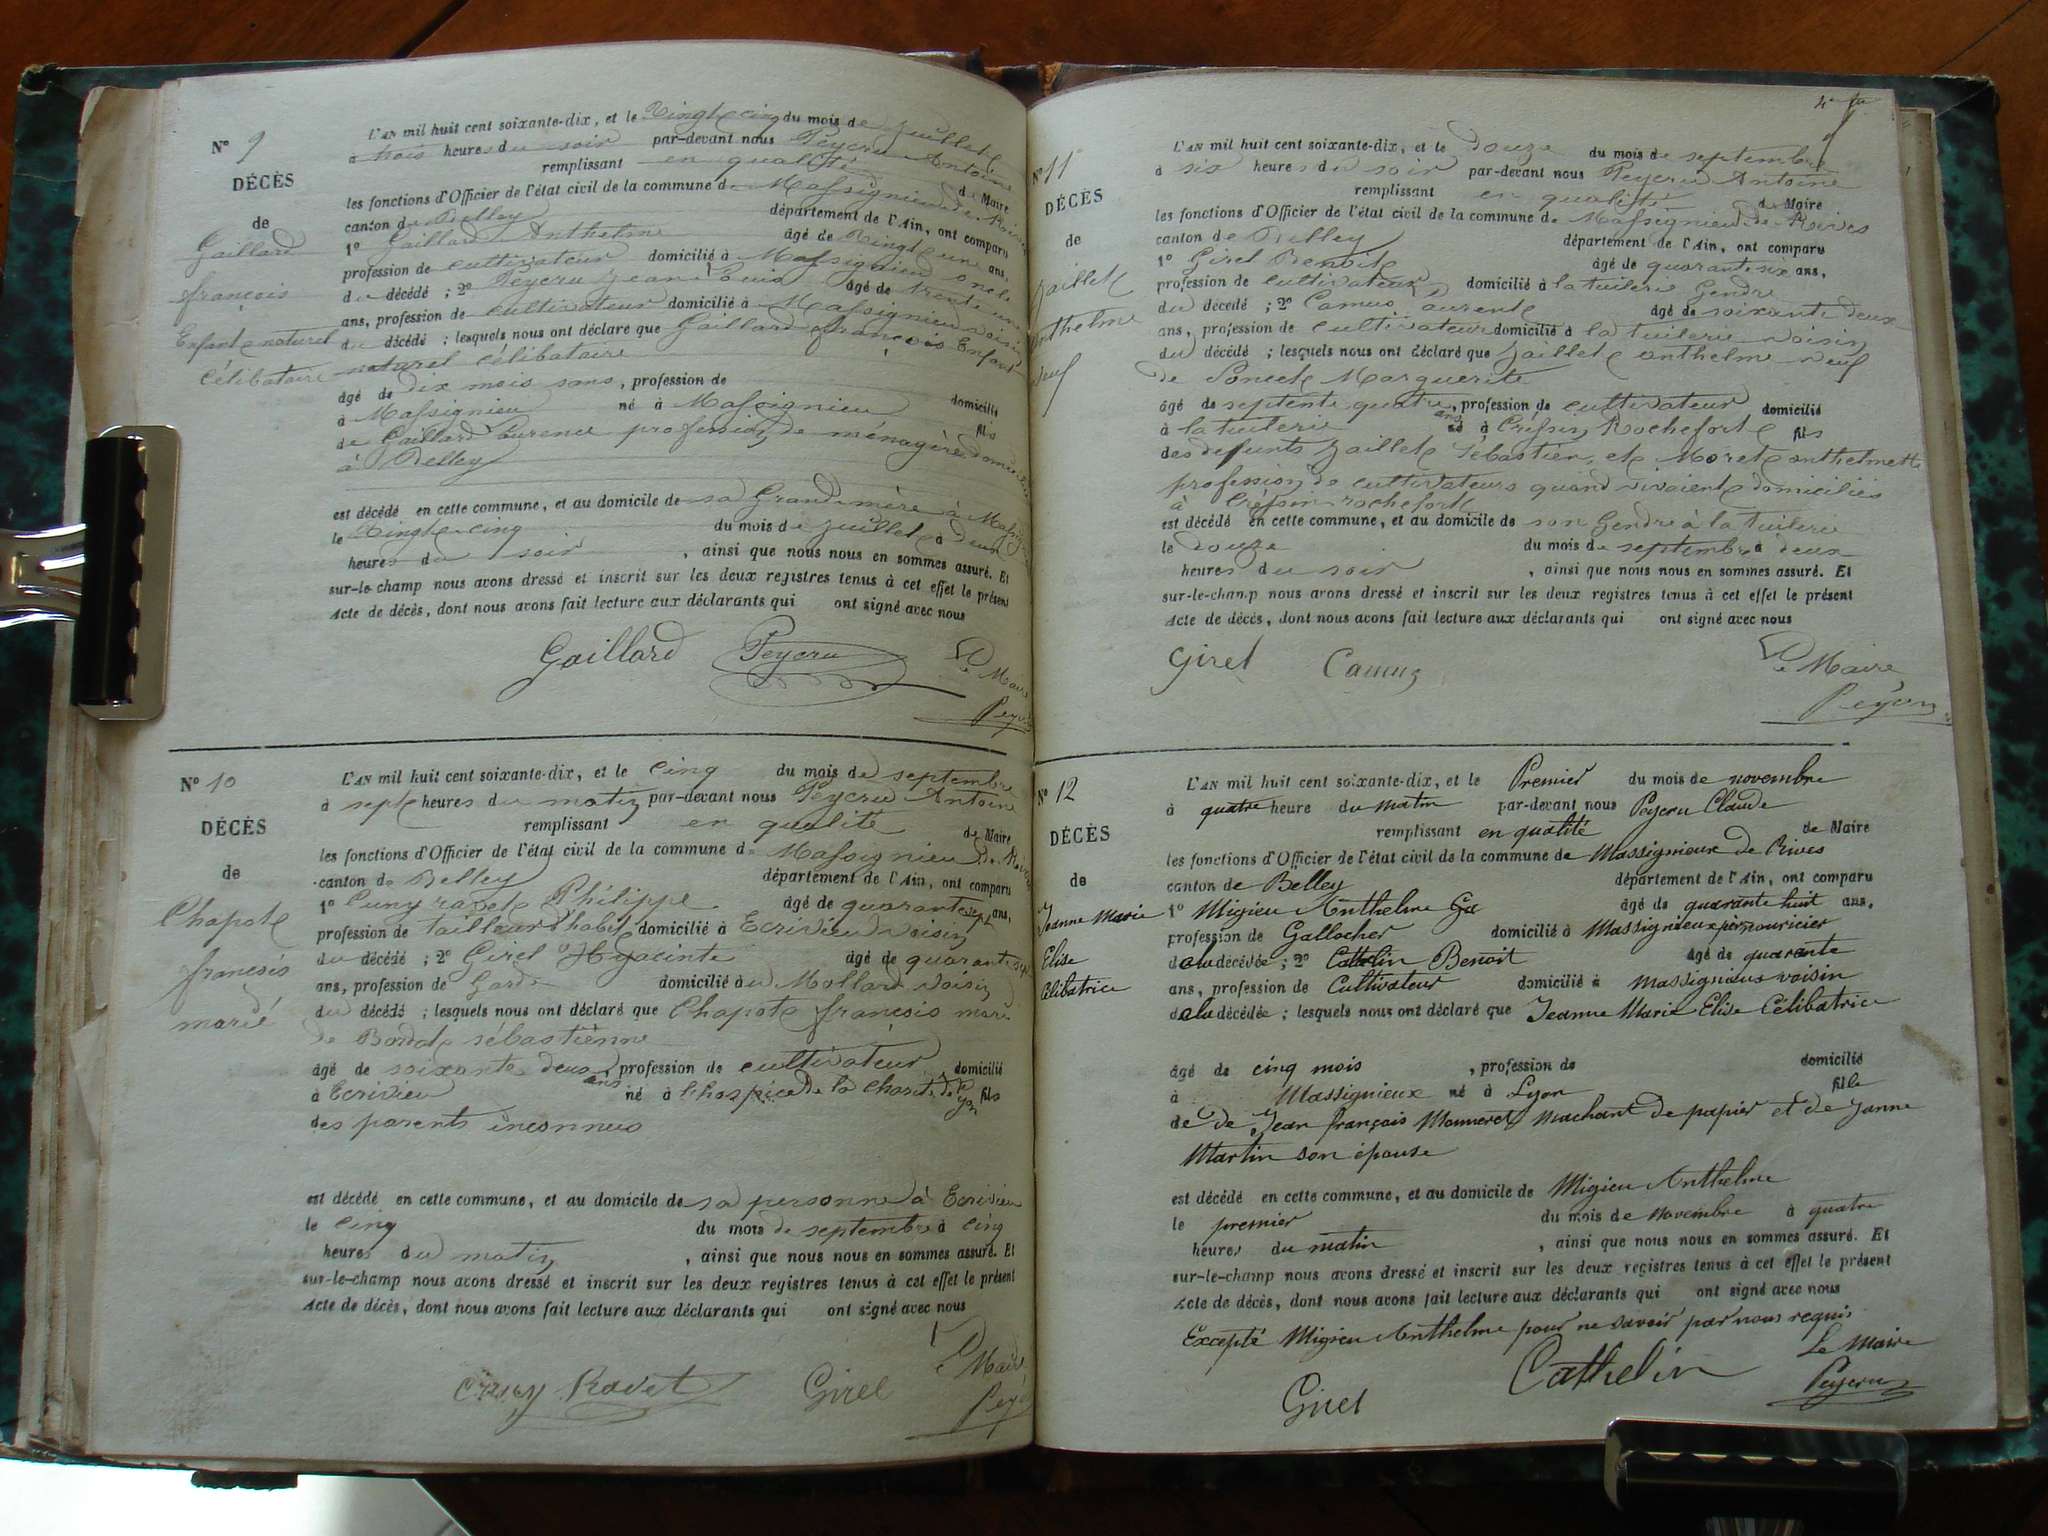 N° 9
DÉCÈS
de
Gaillard
françois
Enfant naturel
Célibataire
L'AN mil huit cent soixante-dix, et le Vingt cinq du mois de juillet
à trois heures du soir par-devant nous Peycru Antoine
remplissant en qualité de Maire
les fonctions d'Officier de l'état civil de la commune de Massignieu de Rives
canton de Belley département de l'Ain, ont comparu
1° Gaillard Anthelme âgé de Vingt une ans,
profession de cultivateur domicilié à Massignieu oncle
du décédé ; 2° Peycru Jean Louis âgé de trente une
ans, profession de cultivateur domicilié à Massignieu voisin
du décédé ; lesquels nous ont déclaré que Gaillard françois Enfant
naturel célibataire
âgé de dix mois sans, profession de domicilié
à Massignieu né à Massignieu fils
de Gaillard Laurence profession de ménagère domiciliée
à Belley
est décédé en cette commune, et au domicile de sa Grand-mère à Massignieu
le Vingt-cinq du mois de juillet à deux
heures du soir , ainsi que nous nous en sommes assuré. Et
sur-le-champ nous avons dressé et inscrit sur les deux registres tenus à cet effet le présent
Acte de décès, dont nous avons fait lecture aux déclarants qui ont signé avec nous
Gaillard Peycru Le Maire
N° 10
DÉCÈS
de
Chapot
françois
marié
L'AN mil huit cent soixante-dix, et le cinq du mois de septembre
à sept heures du matin par-devant nous Peycru Antoine
remplissant en qualité de Maire
les fonctions d'Officier de l'état civil de la commune de Massignieu de Rives
canton de Belley département de l'Ain, ont comparu
1° Cuny ravet Philippe âgé de quarante sept ans,
profession de tailleur d'habit domicilié à Ecrivieu voisin
du décédé ; 2° Girel Hyacinte âgé de quarante
ans, profession de Garde domicilié au Mollard voisin
du décédé ; lesquels nous ont déclaré que Chapot françois marié
de Bordat sébastienne
âgé de soixante deux ans profession de cultivateur domicilié
à Ecrivieu né à l'hospice de la charité de Lyon fils
des parents inconnus
est décédé en cette commune, et au domicile de sa personne à Ecrivieu
le cinq du mois de septembre à cinq
heures du matin , ainsi que nous nous en sommes assuré. Et
sur-le-champ nous avons dressé et inscrit sur les deux registres tenus à cet effet le présent
Acte de décès, dont nous avons fait lecture aux déclarants qui ont signé avec nous
Cuny Ravet Girel Le Maire
N° 11
DÉCÈS
de
Jaillet
Anthelme
veuf
L'AN mil huit cent soixante-dix, et le douze du mois de septembre
à six heures du soir par-devant nous Peycru Antoine
remplissant en qualité de Maire
les fonctions d'Officier de l'état civil de la commune de Massignieu de Rives
canton de Belley département de l'Ain, ont comparu
1° Girel Benoit âgé de quarante six ans,
profession de cultivateur domicilié à la tuilerie Gendre
du décédé ; 2° Camus Laurent âgé de soixante deux
ans, profession de cultivateur domicilié à la tuilerie voisin
du décédé ; lesquels nous ont déclaré que Jaillet anthelme veuf
de Poncet Marguerite
âgé de septente quatre ans, profession de cultivateur domicilié
à la tuilerie né à Crépsin Rochefort fils
des defunts Jaillet Sébastien, et Moret anthelmette
profession de cultivateurs quand vivaient domiciliés
à Crépsin rochefort
est décédé en cette commune, et au domicile de son Gendre à la tuilerie
le douze du mois de septembre à deux
heures du soir , ainsi que nous nous en sommes assuré. Et
sur-le-champ nous avons dressé et inscrit sur les deux registres tenus à cet effet le présent
Acte de décès, dont nous avons fait lecture aux déclarants qui ont signé avec nous
Girel Camus Le Maire
Peycru
N° 12
DÉCÈS
de
Jeanne Marie
Elise
Célibatrice
L'AN mil huit cent soixante-dix, et le Premier du mois de novembre
à quatre heure du matin par-devant nous Peyeru Claude
remplissant en qualité de Maire
les fonctions d'Officier de l'état civil de la commune de Massignieux de Rives
canton de Belley département de l'Ain, ont comparu
1° Migieu Anthelme Ga âgé de quarante huit ans,
profession de Gallocher domicilié à Massignieux père nouricier
de la décédée ; 2° Cathelin Benoit âgé de quarante
ans, profession de Cultivateur domicilié à massignieux voisin
de la décédée ; lesquels nous ont déclaré que Jeanne Marie Elise Célibatrice
âgé de cinq mois , profession de domicilié
à Massignieux né à Lyon fille
de de Jean françois Monneret Machant de papier et de Janne
Martin son épouse
est décédé en cette commune, et au domicile de Migieu Anthelme
le premier du mois de novembre à quatre
heures du matin , ainsi que nous nous en sommes assuré. Et
sur-le-champ nous avons dressé et inscrit sur les deux registres tenus à cet effet le présent
Acte de décès, dont nous avons fait lecture aux déclarants qui ont signé avec nous
Excepté Migieu Anthelme pour ne savoir par nous requis
Girel Cathelin Le Maire
Peyeru